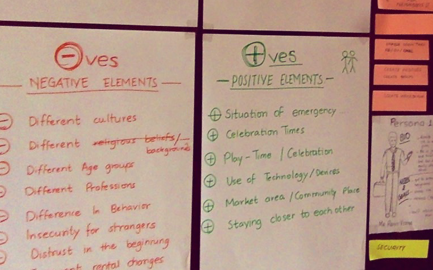 ⊖ves
NEGATIVE ELEMENTS
⊖ Different cultures
⊖ Different religious beliefs/
backgrounds
⊖ Different Age groups
⊖ Different Professions
⊖ Difference In Behavior
⊖ Insecurity for strangers
⊖ Distrust in the beginning
rental changes
⊕ves
POSITIVE ELEMENTS
⊕ Situation of emergency
⊕ Celebration Times
⊕ Play-Time / Celebration
⊕ Use of Technology/Desires
⊕ Market area /Community Place
⊕ Staying closer to each other
Persona 1
BIO
SECURITY